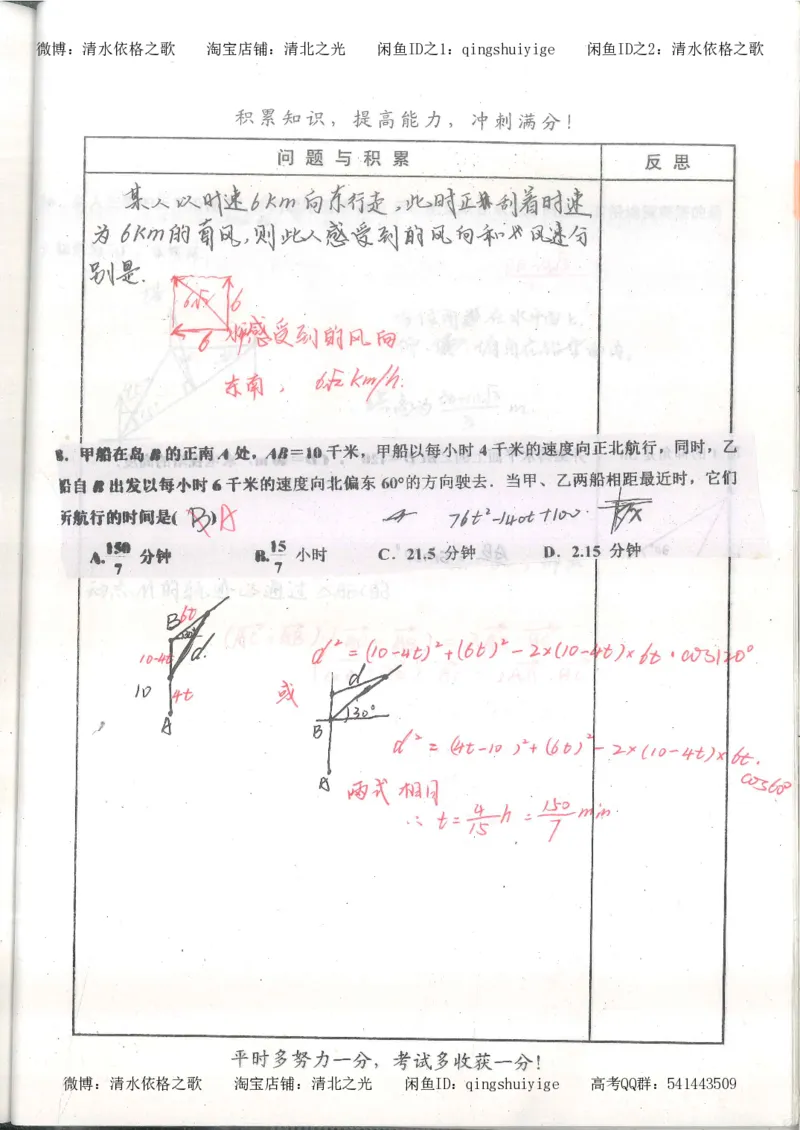 微博：清水依格之歌 淘宝店铺：清北之光 闲鱼ID之1：qingshuiyige 闲鱼ID之2：清水依格之歌
积累知识，提高能力，冲刺满分！
问题与积累 反思
某人以时速6km向东行走，此时正刮着时速
为6km的南风，则此人感受到的风向和风速分
别是
6√2 6
6 感受到的风向
东南， 6√2 km/h.
8．甲船在岛B的正南A处，AB＝10千米，甲船以每小时4千米的速度向正北航行，同时，乙
船自B出发以每小时6千米的速度向北偏东60°的方向驶去．当甲、乙两船相距最近时，它们
所航行的时间是( B ) A 76t²-140t+100
A. 150/7 分钟 B. 15/7 小时 C．21.5 分钟 D．2.15 分钟
B 6t
10-4t d
10 4t
A
d²=(10-4t)²+(6t)²-2×(10-4t)×6t·cos120°
或
d
B 30°
A
d²=(4t-10)²+(6t)²-2×(10-4t)×6t·
cos60°
两式相同
∴ t=4/15 h = 150/7 min
平时多努力一分，考试多收获一分！
微博：清水依格之歌 淘宝店铺：清北之光 闲鱼ID：qingshuiyige 高考QQ群：541443509